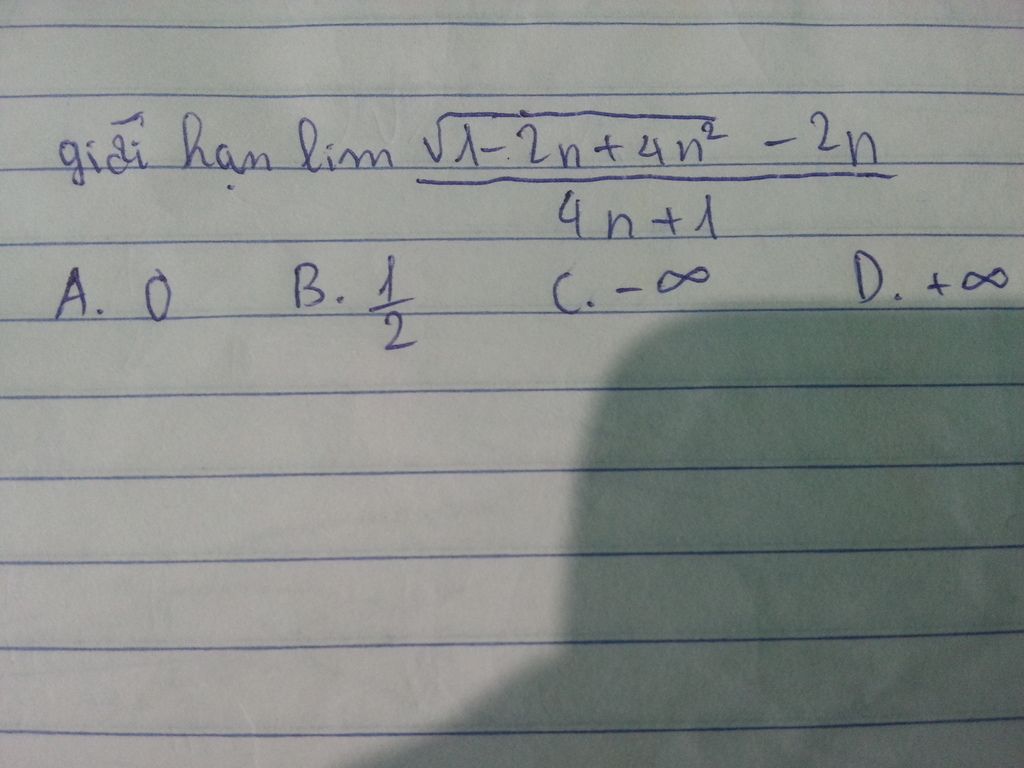 giới hạn lim \frac{\sqrt{1-2n+4n^2}-2n}{4n+1}
A. 0 B. \frac{1}{2} C. -∞ D. +∞